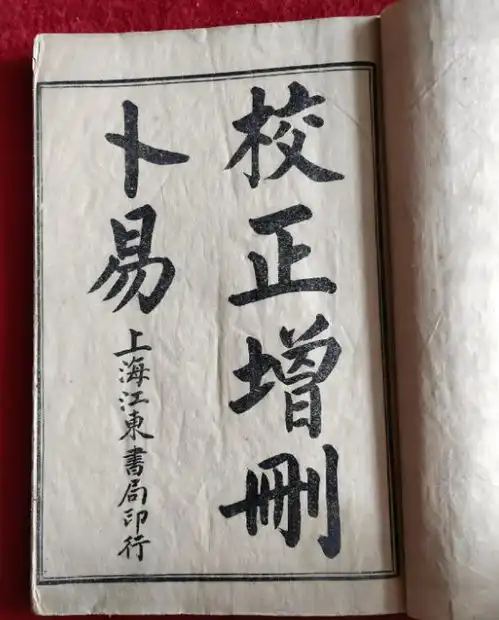 校正增刪
卜易
上海江東書局印行